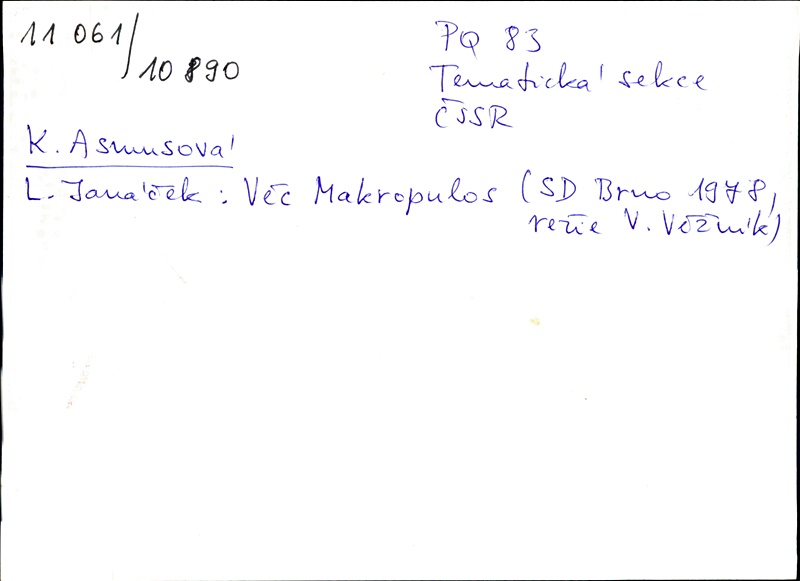 11 061/10 890
PQ 83
Tematická sekce
ČSSR
K. Asmusová
L. Janáček : Věc Makropulos (SD Brno 1978,
režie V. Věžník)